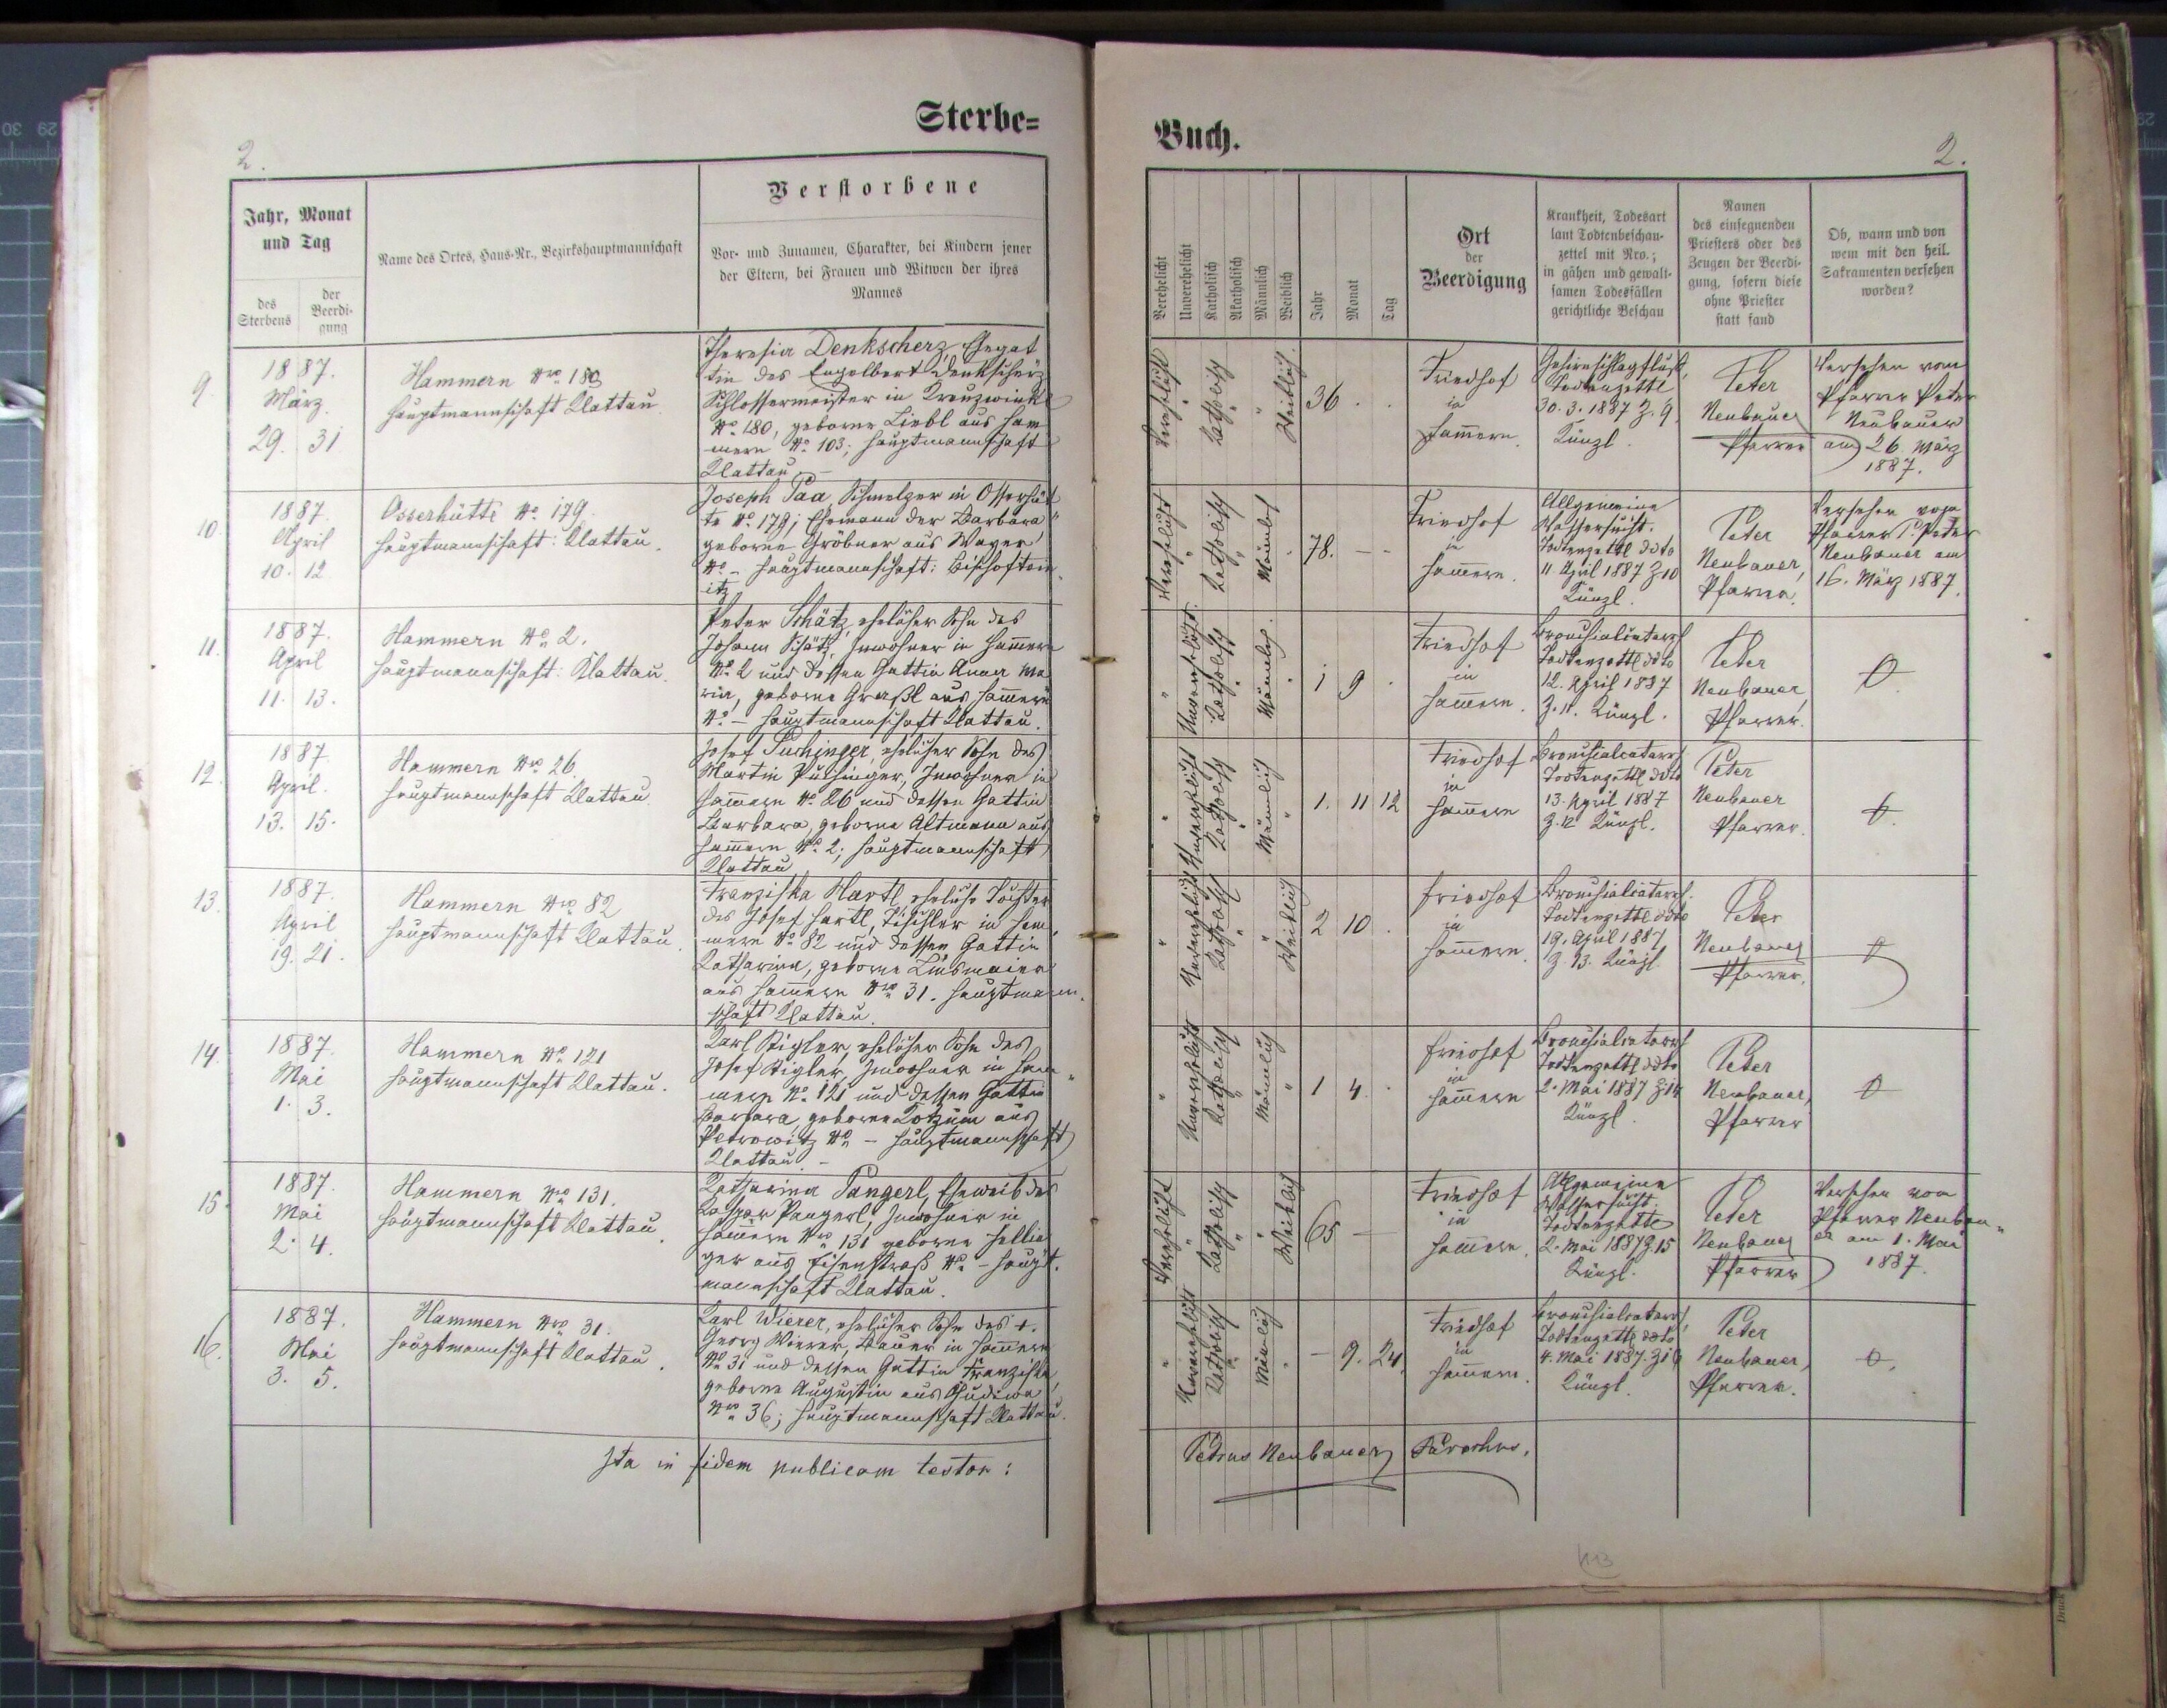 Sterbe=
2.
Jahr, Monat
und Tag
des
Sterbens
der
Beerdi-
gung
Name des Ortes, Haus-Nr., Bezirkshauptmannschaft
Verstorbene
Vor- und Zunamen, Charakter, bei Kindern jener
der Eltern, bei Frauen und Witwen der ihres
Mannes
9.
1887.
März
29. 31
Hammern Nro 180
Hauptmannschaft Klattau
Theresia Denkscherz, Ehegat
tin des Engelbert Denkscherz
Schlossermeister in Kreuzwinkl
No. 180, geborne Liebl aus Ham
mern No. 103; Hauptmannschaft
Klattau. –
10.
1887.
April
10. 12
Osserhütte No. 179.
Hauptmannschaft: Klattau.
Joseph Paa, Schmelzer in Osserhüt
te No. 179; Ehemann der Barbara
geborne Gröbner aus
No. – Hauptmannschaft: Bischoftei
itz
11.
1887.
April
11. 13.
Hammern No. 2.
Hauptmannschaft: Klattau.
Peter Schätz, ehelicher Sohn des
Johann Schätz, Inwohner in Hammern
No. 2 und dessen Gattin Anna Ma
ria, geborne Graßl aus Hammern
No. – Hauptmannschaft Klattau.
12.
1887.
April.
13. 15.
Hammern Nro 26
Hauptmannschaft Klattau.
Josef Puchinger, ehelicher Sohn des
Martin Puchinger, Inwohner in
Hammern No. 26 und dessen Gattin
Barbara, geborne Altmann aus
Hammern No. 2; Hauptmannschaft
Klattau
13.
1887.
April
19. 21.
Hammern Nro 82
Hauptmannschaft Klattau.
Franziska Hartl, eheliche Tochter
des Josef Hartl, Tischler in Ham
mern No. 82 und dessen Gattin
Katharina, geborne Linsmaier
aus Hammern Nro 31. Hauptmann
schaft Klattau.
14.
1887.
Mai
1. 3.
Hammern No. 121
Hauptmannschaft Klattau.
Karl Rigler, ehelicher Sohn des
Josef Rigler, Inwohner in Ham
mern No. 121 und dessen Gattin
Barbara, geborne aus
Petrowitz No. – Hauptmannschaft
Klattau. –
15.
1887.
Mai
2. 4.
Hammern Nro 131.
Hauptmannschaft Klattau.
Katharina Pangerl, Eheweib des
Kaspar Pangerl, Inwohner in
Hammern Nro 131 geborne
ger aus Eisenstraß No. – Haupt.
mannschaft Klattau.
16.
1887.
Mai
3. 5.
Hammern Nro 31.
Hauptmannschaft Klattau.
Karl Wierer, ehelicher Sohn des †.
Georg Wierer, Bauer in Hammern
No. 31 und dessen Gattin Franziska
geborne Augustin aus Chudiwa
Nro 36; Hauptmannschaft Klattau.
Ita in fidem publicam testor:
Buch.
2.
Verehelicht
Unverehelicht
Katholisch
Akatholisch
Männlich
Weiblich
Jahr
Monat
Tag
Ort
der
Beerdigung
Krankheit, Todesart
laut Todtenbeschau-
zettel mit Nro.;
in gähen und gewalt-
samen Todesfällen
gerichtliche Beschau
Namen
des einsegnenden
Priesters oder des
Zeugen der Beerdi-
gung, sofern diese
ohne Priester
statt fand
Ob, wann und von
wem mit den heil.
Sakramenten versehen
worden?
Verehelicht
Katholisch
Weiblich
36 . .
Friedhof
in
Hammern.
Gehirnschlagfluß,
Todtenzettl
30. 3. 1887 Z. 9.
Künzl.
Peter
Neubauer
Pfarrer
Versehen vom
Pfarrer Peter
Neubauer
am 26. März
1887.
Verehelicht
Katholisch
Männlich
78. – –
Friedhof
in
Hammern.
Allgemeine
Wassersucht.
Todtenzettl ddto
11 April 1887 Z 10
Künzl.
Peter
Neubauer,
Pfarrer.
Versehen vom
Pfarrer P. Peter
Neubauer am
16. März 1887.
Unverehelicht
Katholisch
Männlich.
1 9 .
Friedhof
in
Hammern.
Bronchialcatarrh
Todtenzettl ddto
12. April 1887
Z. 11. Künzl.
Peter
Neubauer,
Pfarrer.
Unverehelicht
Katholisch
Männlich
1. 11 12
Friedhof
in
Hammern
Bronchialcatarrh.
Todtenzettl ddto
13. April 1887
Z. 12 Künzl.
Peter
Neubauer
Pfarrer.
Unverehelicht
Katholisch
Weiblich
2 10 .
Friedhof
in
Hammern.
Bronchialcatarrh.
Todtenzettl ddto
19. April 1887
Z. 13. Künzl
Peter
Neubauer
Pfarrer.
Unverehelicht
Katholisch
Männlich
1 4 .
Friedhof
in
Hammern
Bronchialcatarrh
Todtenzettl ddto
2. Mai 1887 Z 14
Künzl.
Peter
Neubauer,
Pfarrer
Verehelicht
Katholisch
Weiblich
65 –
Friedhof
in
Hammern.
Allgemeine
Wassersucht.
Todtenzettl
2. Mai 1887 Z. 15
Künzl.
Peter
Neubauer
Pfarrer
Versehen vom
Pfarrer Neubau
er am 1. Mai
1887.
Unverehelicht
Katholisch
Männlich
– 9. 24.
Friedhof
in
Hammern.
Bronchialcatarrh,
Todtenzettl ddto
4. Mai 1887. Z 16
Künzl.
Peter
Neubauer,
Pfarrer.
Petrus Neubauer Parochus.